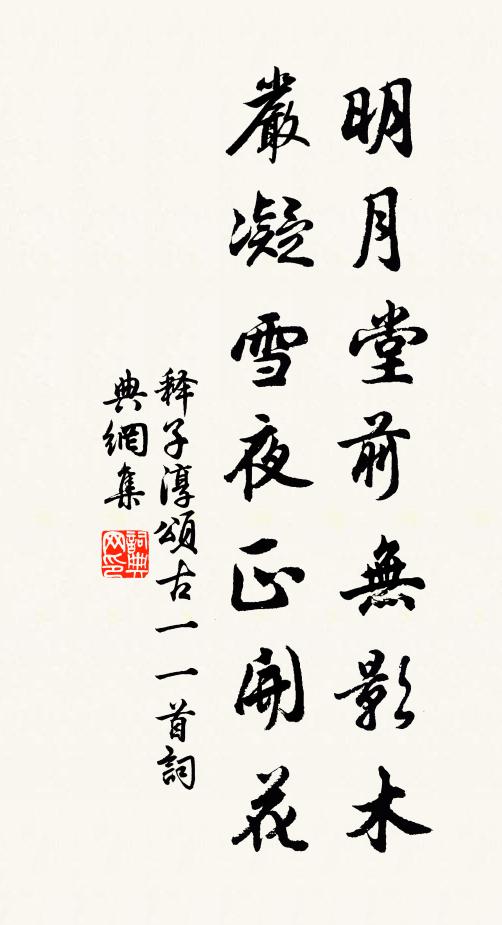 明月堂前無影木
嚴凝雪夜正開花
释子淳頌古一一首詞
典網集
詞典网印